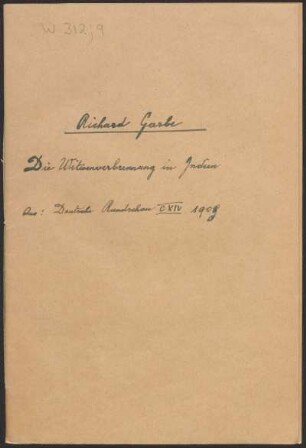 W 312j9
Richard Garbe
Die Witwenverbrennung in Indien
Aus: Deutsche Rundschau CXIV 1903